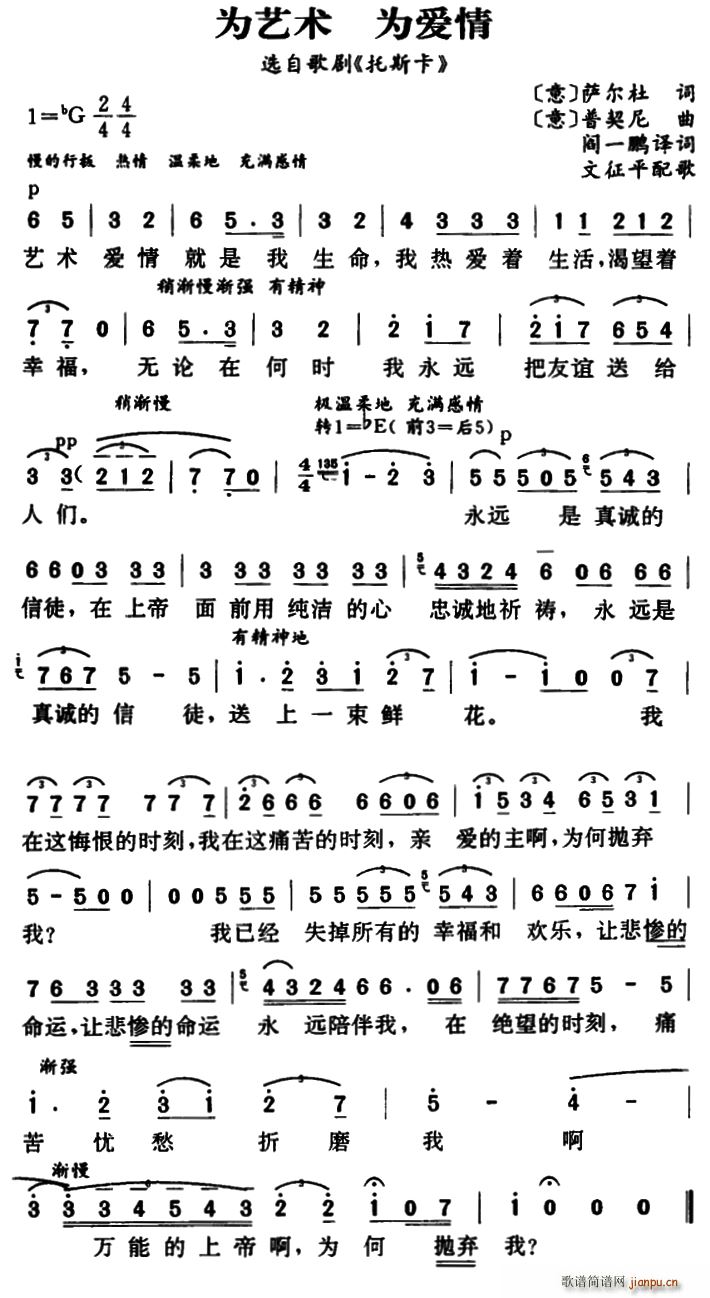 为艺术 为爱情
选自歌剧《托斯卡》
1=♭G 2/4 4/4
〔意〕萨尔杜 词
〔意〕普契尼 曲
阎一鹏译词
文征平配歌
慢的行板 热情 温柔地 充满感情
p
6 5 | 3 2 | 6 5 . 3 | 3 2 | 4 3 3 3 | 1 1 2 1 2 |
艺术 爱情 就是 我 生命,我热爱着 生活,渴望着
稍渐慢渐强 有精神
7 7 0 | 6 5 . 3 | 3 2 | 2 1 7 | 2 1 7 6 5 4 |
幸福, 无论在何时 我永远 把友谊送给
稍渐慢
极温柔地 充满感情
转1=♭E(前3=后5) p
pp
3 3 ( 2 1 2 | 7 7 0 | 4/4 135 1 - 2 3 | 5 5 5 0 5 6 5 4 3 |
人们。 永远 是真诚的
6 6 0 3 3 3 | 3 3 3 3 3 3 3 | 5 4 3 2 4 6 0 6 6 6 |
信徒,在上帝 面前用纯洁的心 忠诚地祈祷,永远是
有精神地
1 7 6 7 5 - 5 | 1 . 2 3 1 2 7 | 1 - 1 0 0 7 |
真诚的信 徒,送上一束鲜 花。 我
7 7 7 7 7 7 7 | 2 6 6 6 6 6 0 6 | 1 5 3 4 6 5 3 1 |
在这悔恨的时刻,我在这痛苦的时刻,亲 爱的主啊,为何抛弃
5 - 5 0 0 | 0 0 5 5 5 | 5 5 5 5 5 5 5 4 3 | 6 6 0 6 7 1 |
我? 我已经 失掉所有的幸福和 欢乐,让悲惨的
7 6 3 3 3 3 3 | 5 4 3 2 4 6 6 . 0 6 | 7 7 6 7 5 - 5 |
命运,让悲惨的命运 永 远陪伴我,在 绝望的时刻,痛
渐强
1 . 2 3 1 2 7 | 5 - 4 - |
苦忧愁 折磨 我 啊
渐慢
3 3 3 4 5 4 3 2 2 | 1 1 0 7 | 1 0 0 0 ‖
万能的上帝啊,为何 抛弃 我?
歌谱简谱网 jianpu.cn